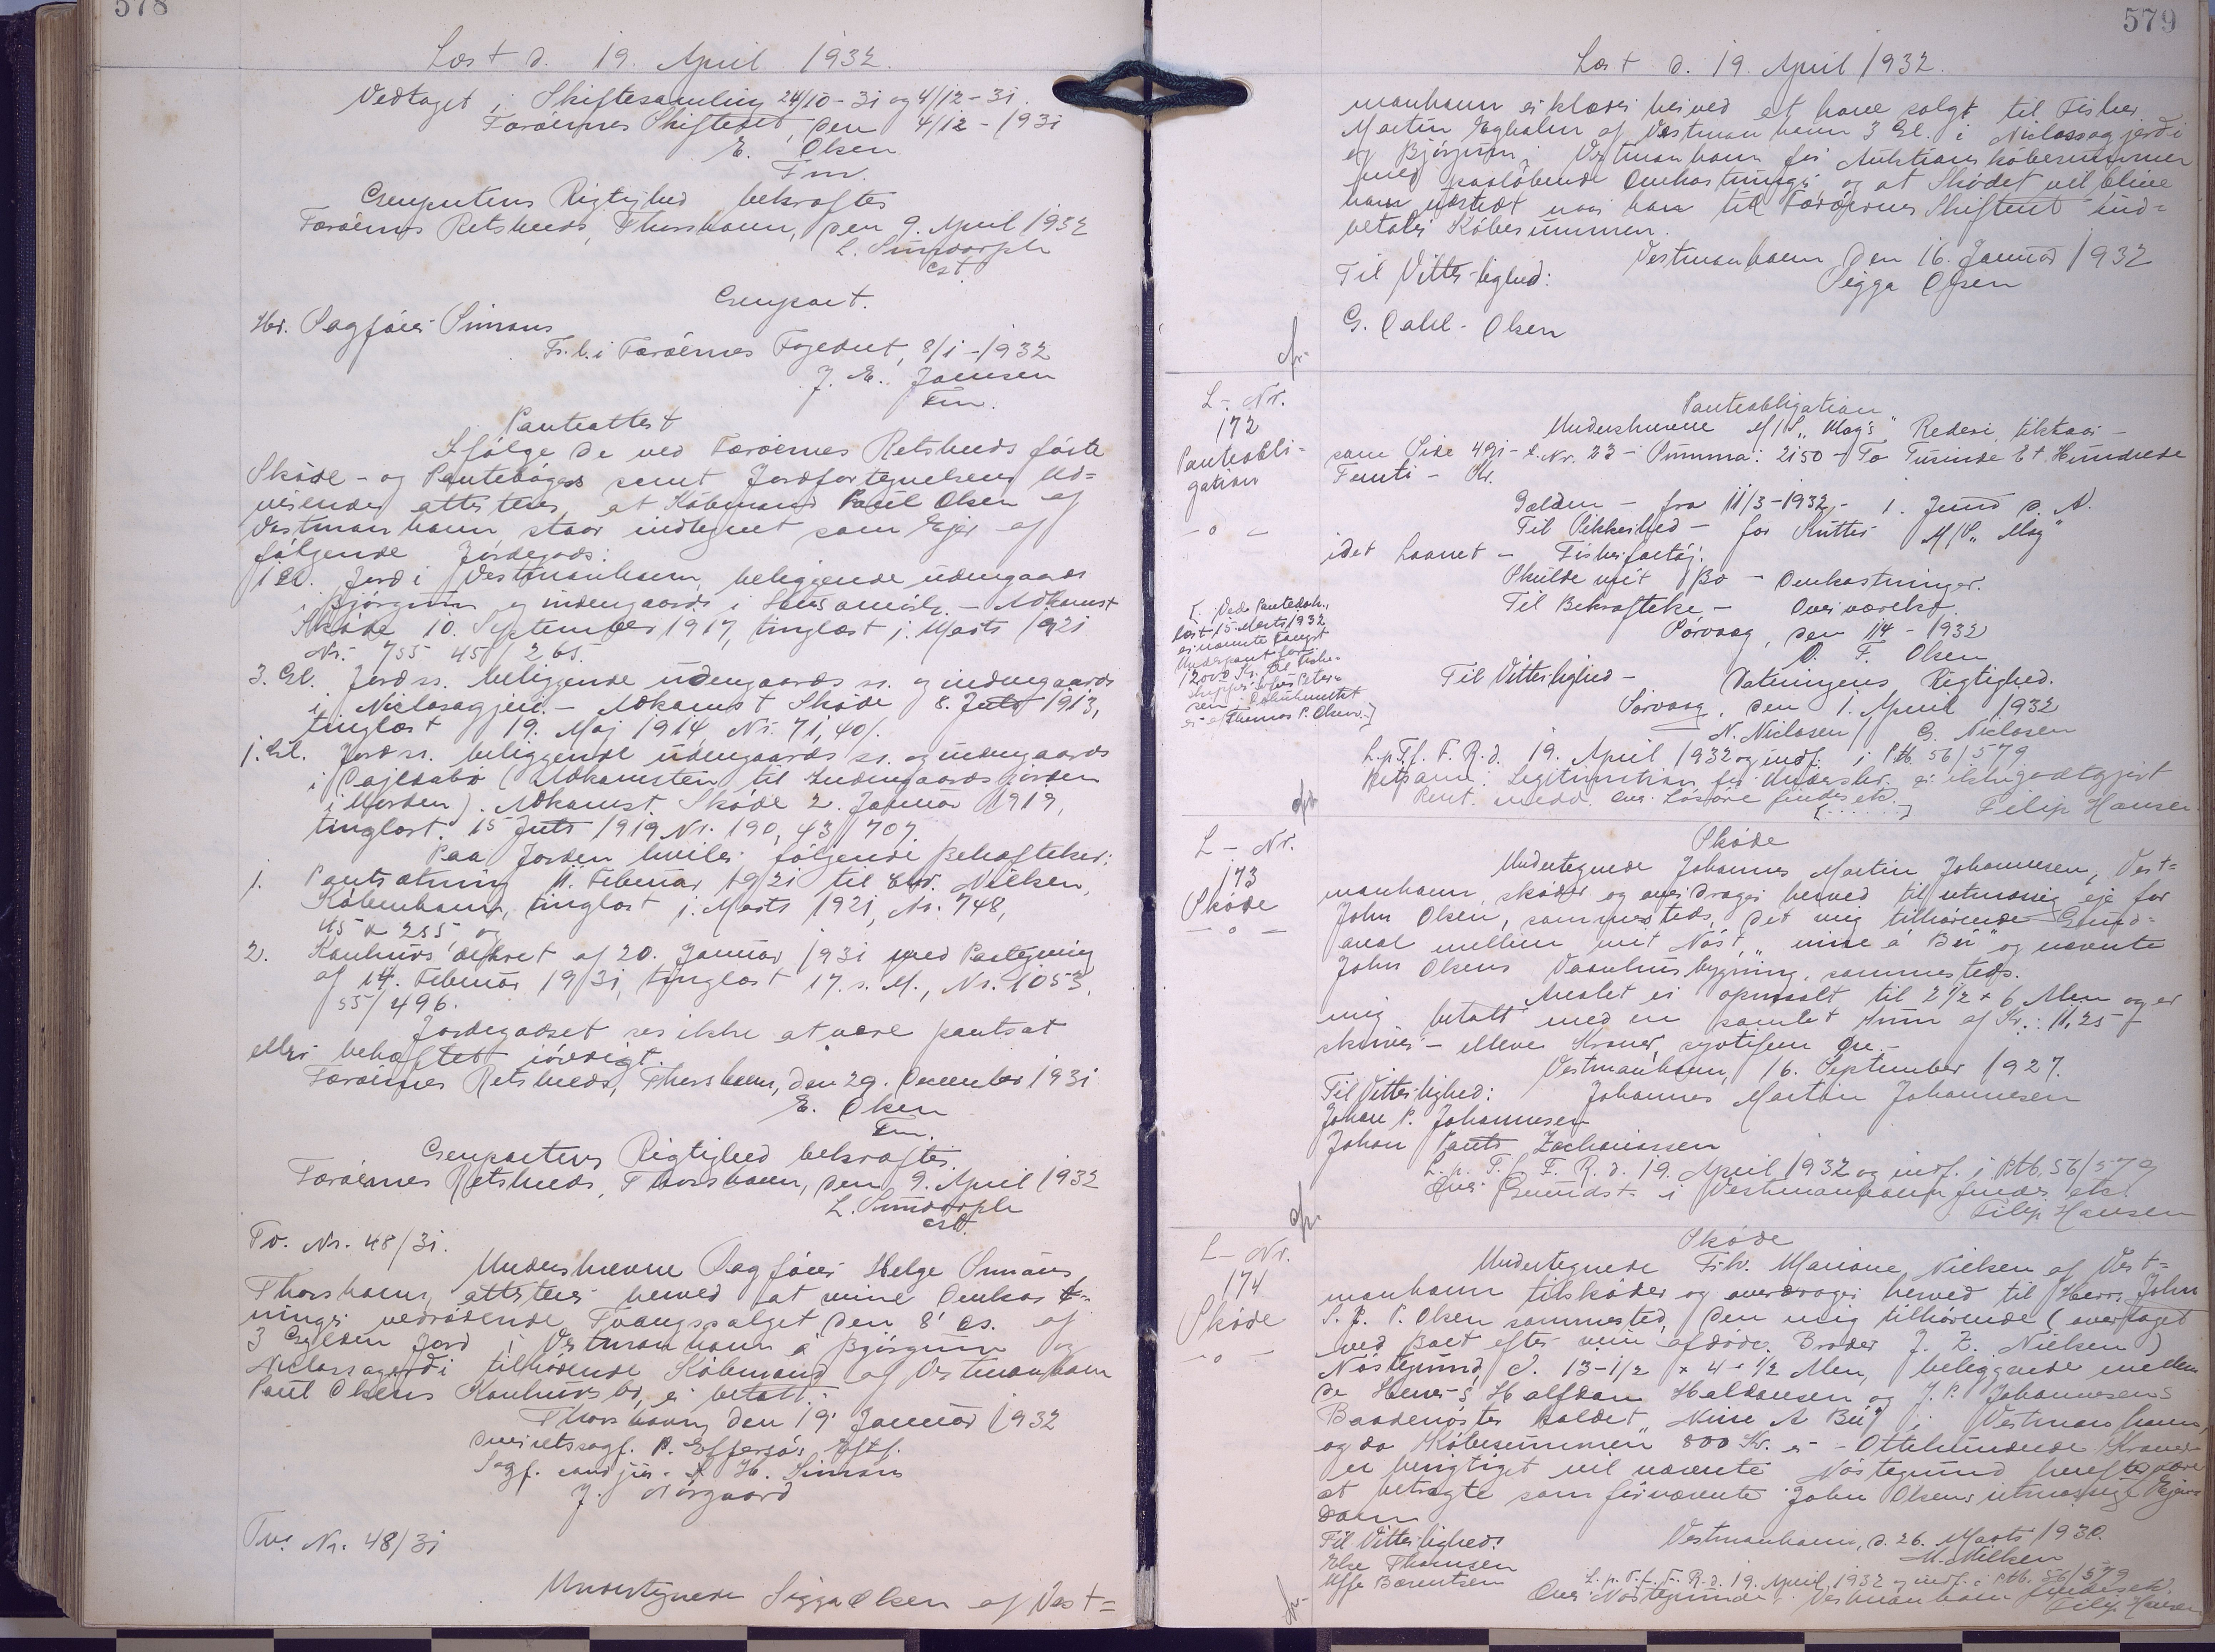 578
Læst d. 19. April 1932.
Vedtaget i Skiftesamling 24/10-31 og 4/12-31.
Færøernes Skifteret, den 4/12-1931
E. Olsen
Fm.
Genpartens Rigtighed bekræftes
Færøernes Retskreds, Thorshavn, den 9. April 1932
L. Sundorph
cst.
Genpart.
Hr. Sagfører Simans
Fr. l. i Færøernes Fogedret, 8/1-1932
J. E. Joensen
Fm.
Panteattest
Ifølge de ved Færøernes Retskreds førte
Skøde- og Pantebøger samt Jordfortegnelsen Ud=
visende attesteres at Købmand Paul Olsen af
Vestmanhavn staar indtegnet som Ejer af
følgende Jordegods:
1 Gl. Jord i Vestmanhavn, beliggende udengaards
i Bjørgum og indengaards i - Adkomst
Skøde 10. September 1917, tinglæst 1. Marts 1921
Nr. 755 45/265.
3. Gl. Jord ss. beliggende udengaards ss. og indengaards
i Niclasagjerd. - Adkomst Skøde 8. Juli 1913,
tinglæst 19. Maj 1914, Nr. 71, 40/.
1. Gl. Jord ss. beliggende udengaards ss. og indengaards
i (Adkomsten til Indengaardsjorden
i Uorden). Adkomst Skøde 2. Januar 1919,
tinglæst 15 Juli 1919 Nr. 190, 43/707.
Paa Jorden hviler følgende Behæftelser:
1. Pantsætning 11. Februar 1921 til Nielsen,
København, tinglæst 1. Marts 1921, Nr. 748,
45 & 255 og
2. Konkurs dekret af 20. Januar 1931 med Paategning
af 14. Februar 1931, tinglæst 17. s. M., Nr. 1053,
55/496.
Jordegodset ses ikke at være pantsat
eller behæftet iøvrigt.
Færøernes Retskreds, Thorshavn, den 29. December 1931
E. Olsen
Fm.
Genpartens Rigtighed bekræftes.
Færøernes Retskreds, Thorshavn, den 9. April 1932
L. Sundorph
cst.
Tv. Nr. 48/31.
Underskrevne Sagfører Helge Simans
Thorshavn, attesterer herved at mine Omkost=
ninger vedrørende Tvangssalget den 8' ds. af
3 Gylden Jord i Vestmanhavn á Bjørgum og
Niclassagerdi tilhørende Købmand af Vestmanhavn
Paul Olsens Konkursbo, er betalt.
Thorshavn, den 19' Januar 1932
Overretssagf. P. Effersøs Eftf.
Sagf. cand jur. H. Simans
J. Nörgaard
Tv. Nr. 48/31
Undertegnede Sigga Olsen af Vest=
579
Læst d. 19. April 1932.
manhavn erklærer herved at have solgt til Fisker
Martin Egholm af Vestmanhavn 3 Gl. i Niclassagjerdi
og Bjørgum i Vestmanhavn for Auktionskøbesummen
med paaløbende Omkostninger og at Skødet vil blive
ham udstedt naar han til Færøernes Skifteret ind=
betaler Købesummen.
Vestmanhavn den 16. Januar 1932
Til Vitterlighed: Sigga Olsen
G. Dahl-Olsen
L-Nr.
172
Panteobli-
gation
-o-
Panteobligation
Underskrevne M/S „Mag's" Rederi, tilstaar -
som Side 491 - L.Nr. 23 - Summa: 2150 - To Tusinde Et Hundrede
Femti - Kr.
Gælden - fra 11/3-1932 - 1. Juni d. A.
Til Sikkerhed - for Kutter M/S „Mag"
idet Laanet - Fiskerfartøj.
Skulde mit Bo - Omkostninger.
Til Bekræftelse - Overværelse.
Sørvaag, den 1/4-1932
O. F. Olsen
Til Vitterlighed - Dateringens Rigtighed.
Sørvaag, den 1. April 1932
N. Niclasen / G. Niclasen
[. Ved Panteobl.,
læst 15. Marts 1932
er nævnte Fangst
Underpant for
12000 Kr. til Fiske-
skipper Peter-
sen - Dokumentet
er af Thomas P. Olsen.]
L.p.T.f. F.R.d. 19. April 1932 og indf. i Ptb. 56/579
Retsanm: Legitimation for Underskr. er ikke godtgjort
Rent. medd. ang. Løsøre findes etc. [......] Filip Hansen
L-Nr.
173
Skøde
-o-
Skøde
Undertegnede Johannes Martin Johannesen, Vest=
manhavn, skøder og overdrager herved til utmassig eje for
John Olsen, sammesteds, det mig tilhørende Grund=
areal mellem mit Nóst, „ á Bø" og nævnte
John Olsens Vaanhusbygning, sammesteds.
Arealet er opmaalt til 2 1/2 + 6 Alen og er
mig betalt med en samlet Sum af Kr.: 11,25
skriver - elleve Kroner, syvtifem Øre.-
Vestmanhavn, 16. September 1927.
Til Vitterlighed: Johannes Martin Johannesen
Johan P. Johannesen
Johan Pauli Zachariassen
L.p.T.f. F.R.d. 19. April 1932 og indf. i Ptb. 56/579
Over Grundst. i Vestmanhavn findes etc.
Filip Hansen
L-Nr.
174.
Skøde
-o-
Skøde
Undertegnede Frk. Mariane Nielsen af Vest=
manhavn tilskøder og overdrager herved til Herr John
S. P. P. Olsen sammested, den mig tilhørende (overtaget
ved Boet efter min afdøde Broder J. Z. Nielsen)
Nóstgrund, d. 13-1/2 x 4 1/2 Alen, beliggende mellem
de Herrer's Halfdan Haldansen og J. P. Johannesens
Baadenóster kaldet „ A Bø" i Vestmanhavn,
og da Købesummen 800 Kr. er - Ottehundrede Kroner
er berigtiget vil nævnte Nóstegrund herefter være
at betragte som førnævnte John Olsens utmassige Ejen
dom
Til Vitterlighed: Vestmanhavn, d. 26. Marts 1930.
Else Thomsen M. Nielsen
Uffe Bærentsen L.p.T.f. F.R.d. 19. April 1932 og indf. i Ptb. 56/579
Over Nóstegrunde i Vestmanhavn findes etc.
Filip Hansen